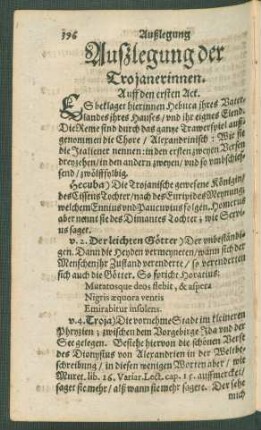 396 Außlegung
Außlegung der
Trojanerinnen.
Auff den ersten Act.
ES beklaget hierinnen Hebuca ihres Vater-
landes ihres Hauses / vnd ihr eignes Elend.
Die Reme sind durch das gantze Trawerspiel auß-
genommen die Chore / Alexandrinisch: Wie sie
die Italiener nennen: in den ersten zweyen Versen
dreyzehen / in den andern zweyen / vnd so vmbschief-
send / zwölffsylbig.
Hecuba) Die Trojanische gewesene Königin /
des Cissens Tochter / nach des Euripides Meynung;
welchem Ennius vnd Pacuvius folgen. Homerus
aber nennt sie des Dimantes Tochter; wie Servi-
us saget.
v. 2. Der leichten Götter) Der vnbeständi-
gen. Dann die Heyden vermeyneten / wann sich der
Menschen jhr Zustand veränderte / so veränderten
sich auch die Götter. So spricht Horatius:
Mutatosque deos flebit, & aspera
Nigris æquora ventis
Emirabitur insolens.
v. 4. Troja) Die vornehme Stadt im kleineren
Phrygien; zwischen dem Vorgebirge Ida vnd der
See gelegen. Besiehe hiervon die schönen Verse
des Dionysius von Alexandrien in der Weltbe-
schreibung / in diesen wenigen Worten aber / wie
Muret. lib. 26. Variar. Lect. cap. 15. auffmercket /
saget sie mehr / alß wann sie mehr sagete. Der sehe
mich